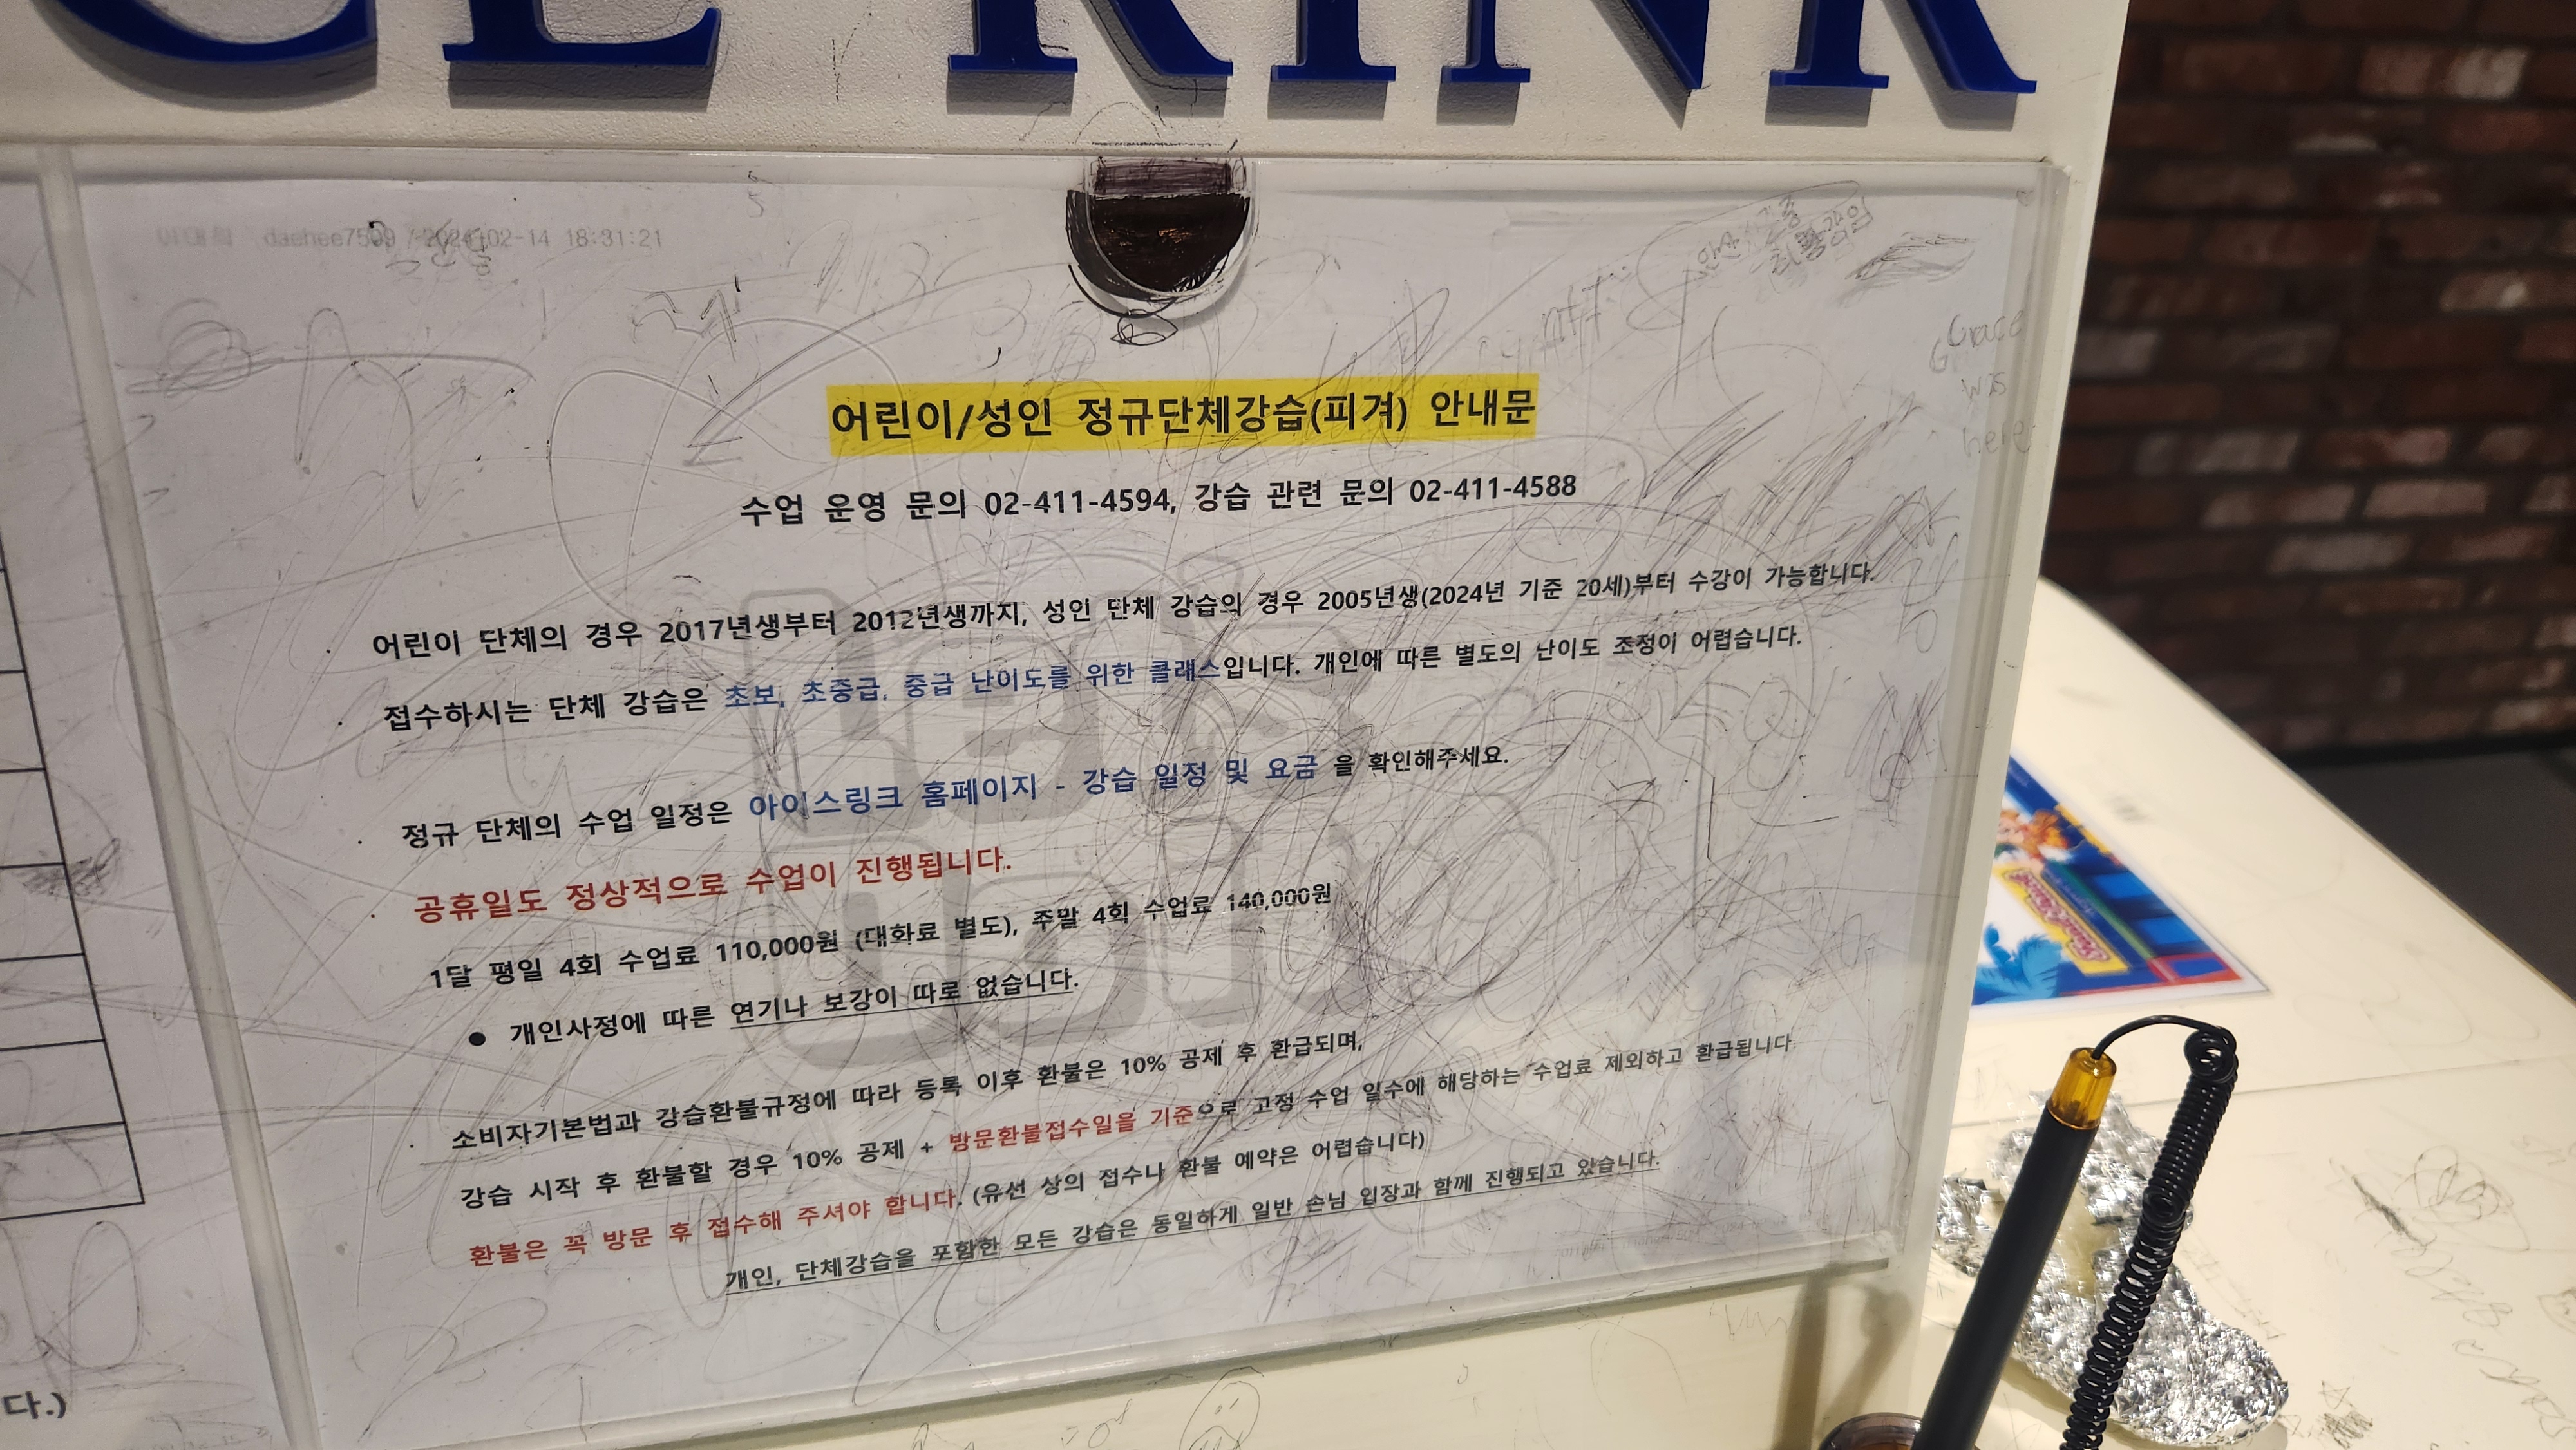 CE RINK
daehee7599 / 2024-02-14 18:31:21
어린이/성인 정규단체강습(피겨) 안내문
수업 운영 문의 02-411-4594, 강습 관련 문의 02-411-4588
어린이 단체의 경우 2017년생부터 2012년생까지, 성인 단체 강습의 경우 2005년생(2024년 기준 20세)부터 수강이 가능합니다.
접수하시는 단체 강습은 초보, 초중급, 중급 난이도를 위한 클래스입니다. 개인에 따른 별도의 난이도 조정이 어렵습니다.
정규 단체의 수업 일정은 아이스링크 홈페이지 - 강습 일정 및 요금 을 확인해주세요.
공휴일도 정상적으로 수업이 진행됩니다.
1달 평일 4회 수업료 110,000원 (대화료 별도), 주말 4회 수업료 140,000원
● 개인사정에 따른 연기나 보강이 따로 없습니다.
소비자기본법과 강습환불규정에 따라 등록 이후 환불은 10% 공제 후 환급되며,
강습 시작 후 환불할 경우 10% 공제 + 방문환불접수일을 기준으로 고정 수업 일수에 해당하는 수업료 제외하고 환급됩니다
환불은 꼭 방문 후 접수해 주셔야 합니다. (유선 상의 접수나 환불 예약은 어렵습니다)
개인, 단체강습을 포함한 모든 강습은 동일하게 일반 손님 입장과 함께 진행되고 있습니다.
Grace
was
here
다.)